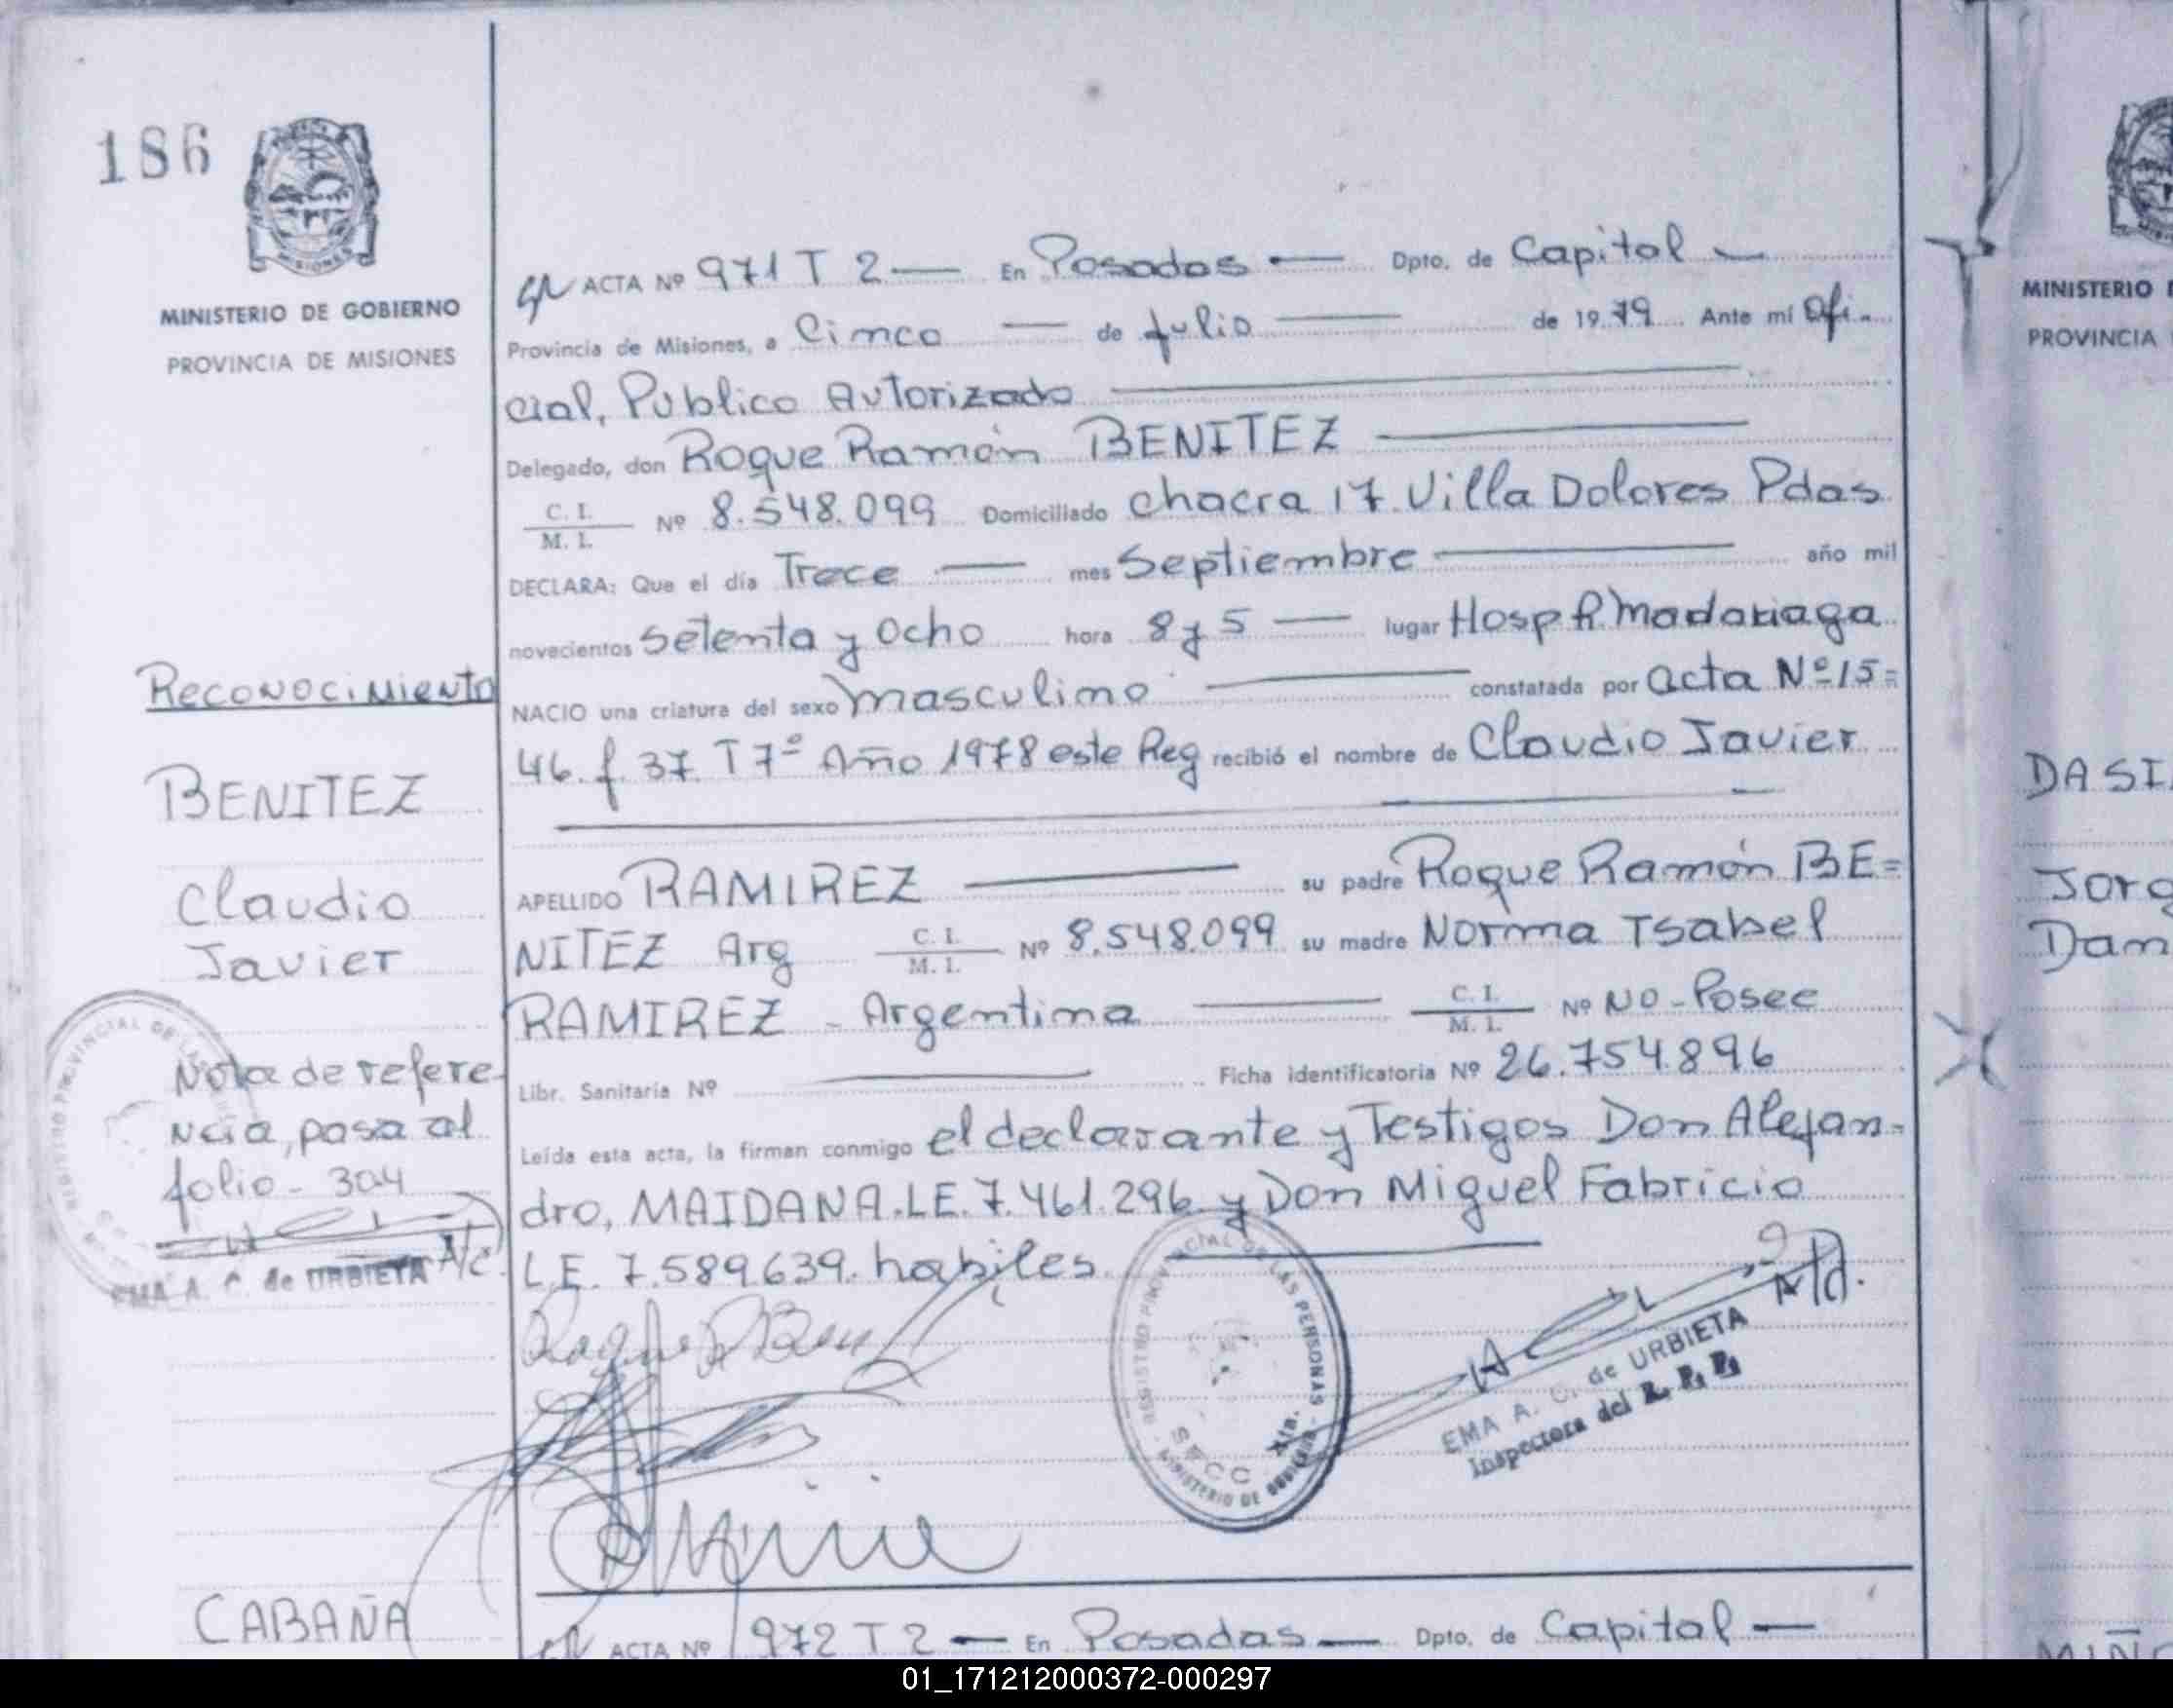 186
MISIONES
MINISTERIO DE GOBIERNO
PROVINCIA DE MISIONES
ACTA Nº 971 T 2 — En Posadas — Dpto. de Capital —
Provincia de Misiones, a Cinco — de julio — de 1979 Ante mí Ofi-
cial, Publico Autorizado
Delegado, don Roque Ramón BENITEZ
C. I.
M. I. Nº 8.548.099 Domiciliado chacra 17. Villa Dolores Pdas
DECLARA: Que el día Trece — mes Septiembre — año mil
novecientos Setenta y Ocho hora 8 y 5 — lugar Hosp R. Madariaga
NACIO una criatura del sexo masculino — constatada por acta Nº 15=
46. f. 37. T 7º Año 1978 este Reg recibió el nombre de Claudio Javier
APELLIDO RAMIREZ — su padre Roque Ramón BE=
NITEZ Arg C. I. M. I. Nº 8.548.099 su madre Norma Isabel
RAMIREZ - Argentina — C. I. M. I. Nº NO-Posee
Libr. Sanitaria Nº — Ficha identificatoria Nº 26.754.896
Leída esta acta, la firman conmigo el declarante y Testigos Don Alejan-
dro, MAIDANA. L.E. 7.461.296 y Don Miguel Fabricio
L.E. 7.589.639. habiles.
Reconocimiento
BENITEZ
Claudio
Javier
Nota de refere-
ncia, pasa al
folio - 304
EMA A. C. de URBIETA A/c.
REGISTRO PROVINCIAL DE LAS PERSONAS
MINISTERIO DE GOBIERNO
SECC
4ta.
EMA A. C. de URBIETA
Inspectora del R. P. P.
CABAÑA
ACTA Nº 972 T 2 — En Posadas — Dpto. de Capital —
MINISTERIO
PROVINCIA
DASI
Jorg
Dan
01_171212000372-000297